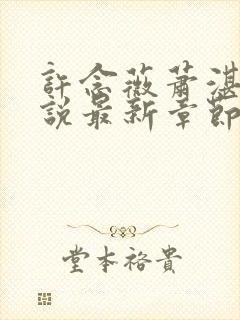 許念薇蕭湛
說最新章節
堂本裕貴